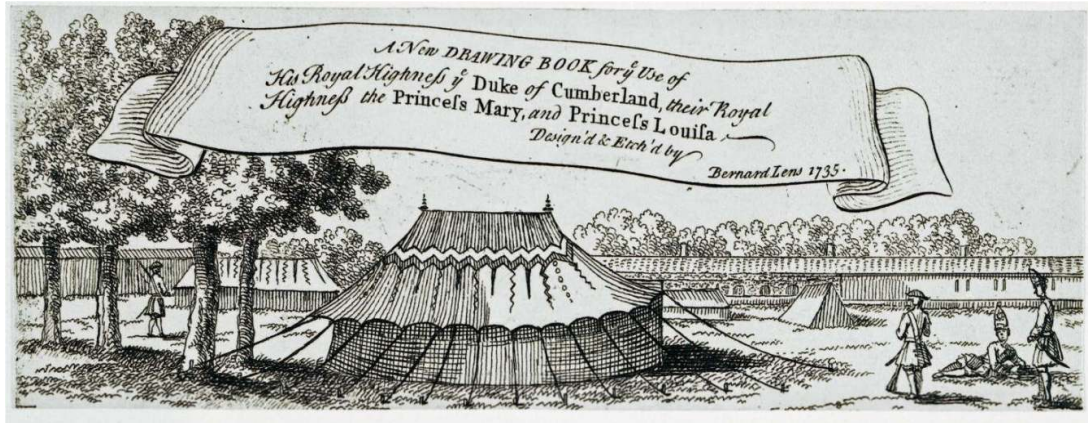 A New DRAWING BOOK for yᵉ Use of
His Royal Highneſs yᵉ Duke of Cumberland, their Royal
Highneſs the Princeſs Mary, and Princeſs Louiſa
Deſign'd & Etch'd by
Bernard Lens 1735.